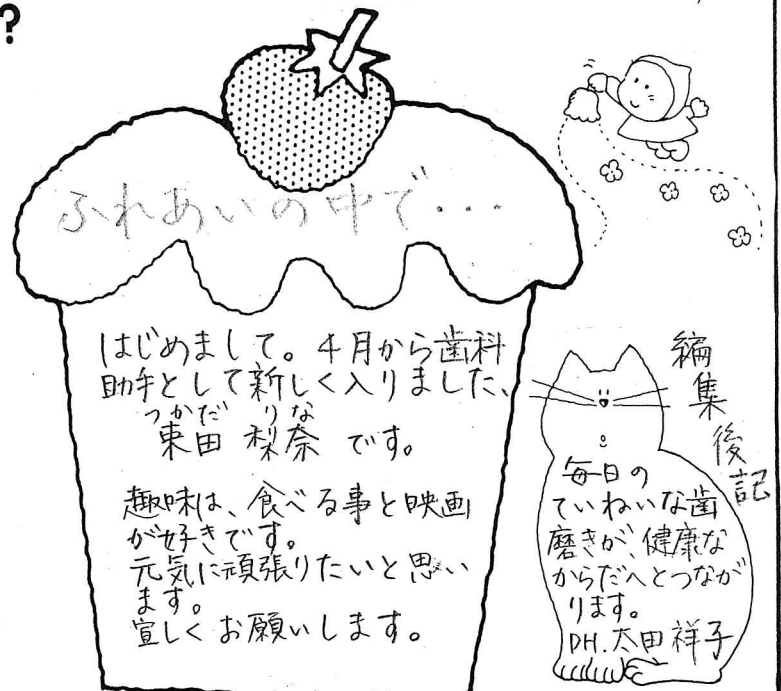 ?
ふれあいの中で・・・
はじめまして。4月から歯科
助手として新しく入りました、
つかだ りな
束田 梨奈 です。
趣味は、食べる事と映画
が好きです。
元気に頑張りたいと思い
ます。
宜しくお願いします。
編集後記
毎日の
ていねいな歯
磨きが、健康な
からだへとつなが
ります。
DH.太田祥子